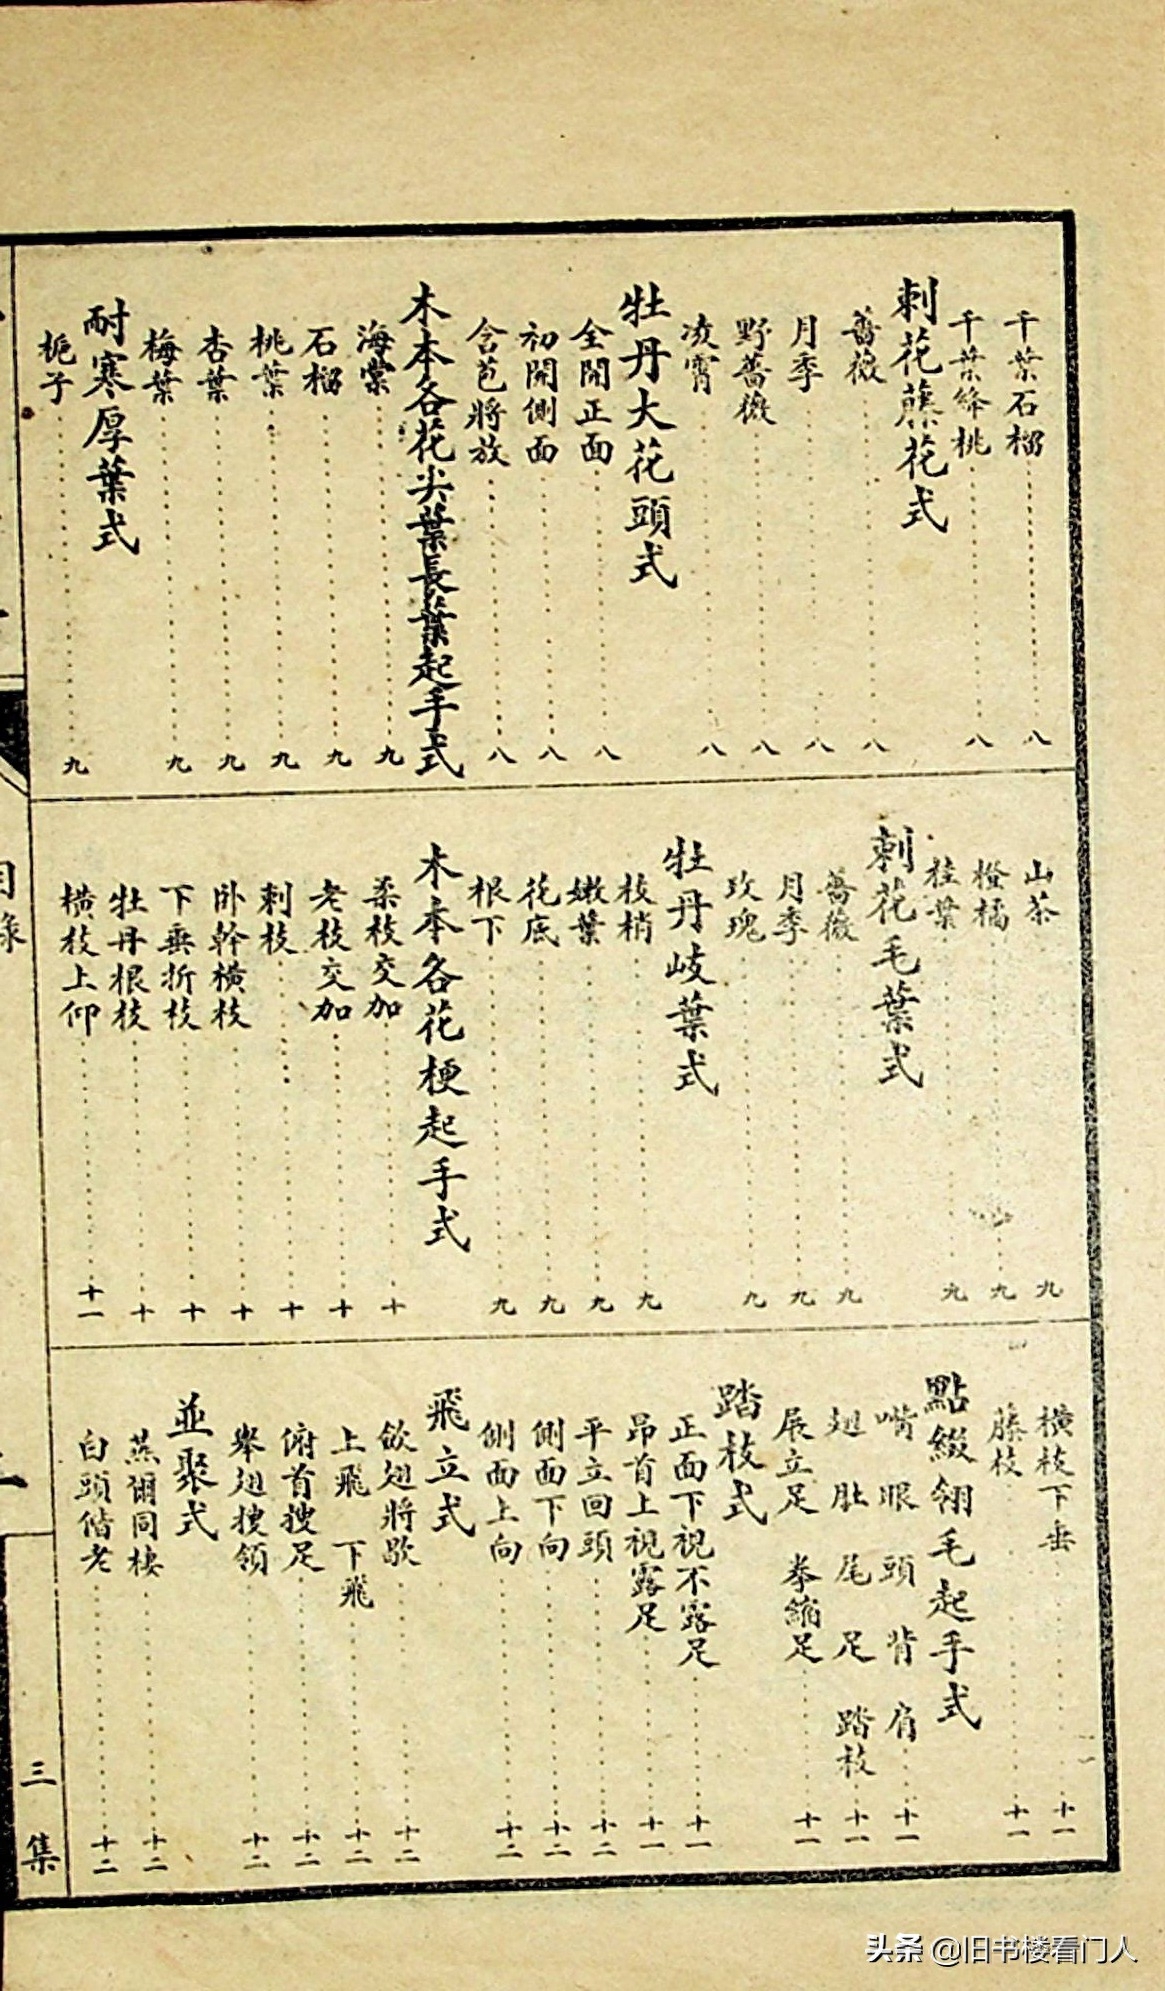 千葉石榴……八
千葉絳桃……八
刺花藤花式
薔薇……八
月季……八
野薔薇……八
凌霄……八
牡丹大花頭式
全開正面……八
初開側面……八
含苞將放……八
木本各花尖葉長葉起手式
海棠……九
石榴……九
桃葉……九
杏葉……九
梅葉……九
耐寒厚葉式
梔子……九
山茶……九
橙橘……九
桂葉……九
刺花毛葉式
薔薇……九
月季……九
玫瑰……九
牡丹岐葉式
枝梢……九
嫩葉……九
花底……九
根下……九
木本各花梗起手式
柔枝交加……十
老枝交加……十
刺枝……十
卧幹橫枝……十
下垂折枝……十
牡丹根枝……十
橫枝上仰……十一
橫枝下垂……十一
藤枝……十一
點綴翎毛起手式
嘴 眼 頭 背 肩……十一
翅 肚 尾 足 踏枝……十一
展立足 拳縮足……十一
踏枝式
正面下視不露足……十一
昂首上視露足……十一
平立回頭……十二
側面下向……十二
側面上向……十二
飛立式
斂翅將歇……十二
上飛 下飛……十二
俯首搜足……十二
舉翅搜領……十二
並聚式
燕爾同棲……十二
白頭偕老……十二
目錄
三集
头条 @旧书楼看门人